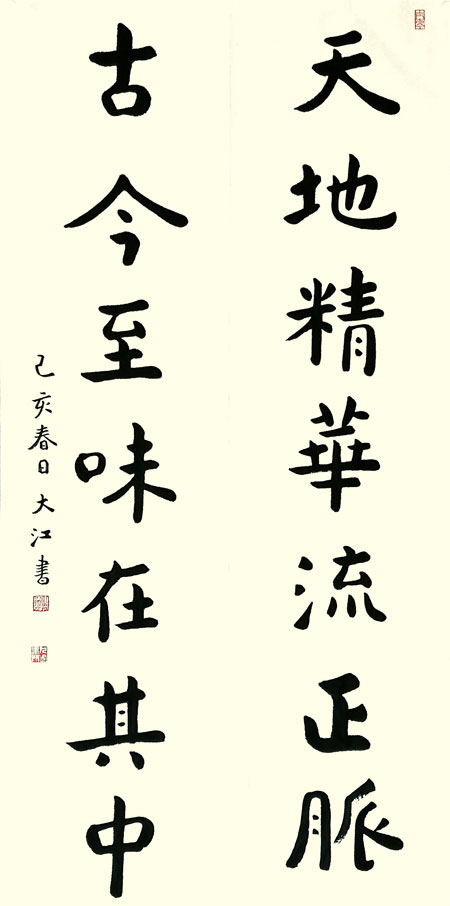 天地精華流正脈
古今至味在其中
己亥春日大江書